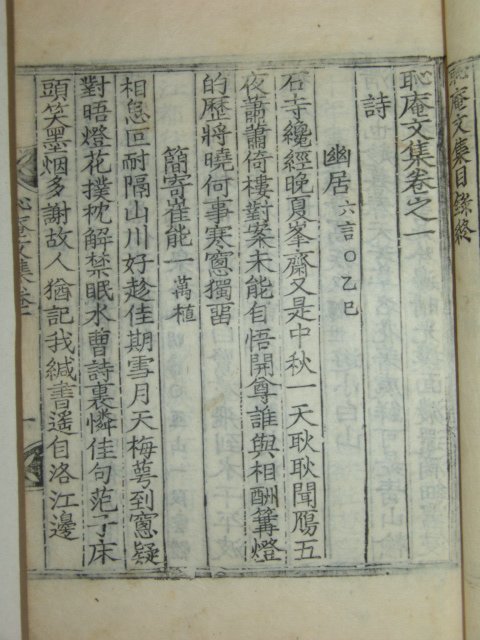 恥庵文集目錄終
恥庵文集卷之一
詩
幽居 六言○乙巳
石寺纔經晚夏峯齋又是中秋一天耿耿聞鴈五
夜蕭蕭倚樓對案未能自悟開尊誰與相酬篝燈
的歷將曉何事寒窻獨留
簡寄崔能一 萬植
相怱叵耐隔山川好趁佳期雪月天梅萼到窻疑
對晤燈花撲枕解禁眠水曹詩裏憐佳句范子床
頭笑墨烟多謝故人猶記我緘書遥自洛江邊
恥庵文集卷一